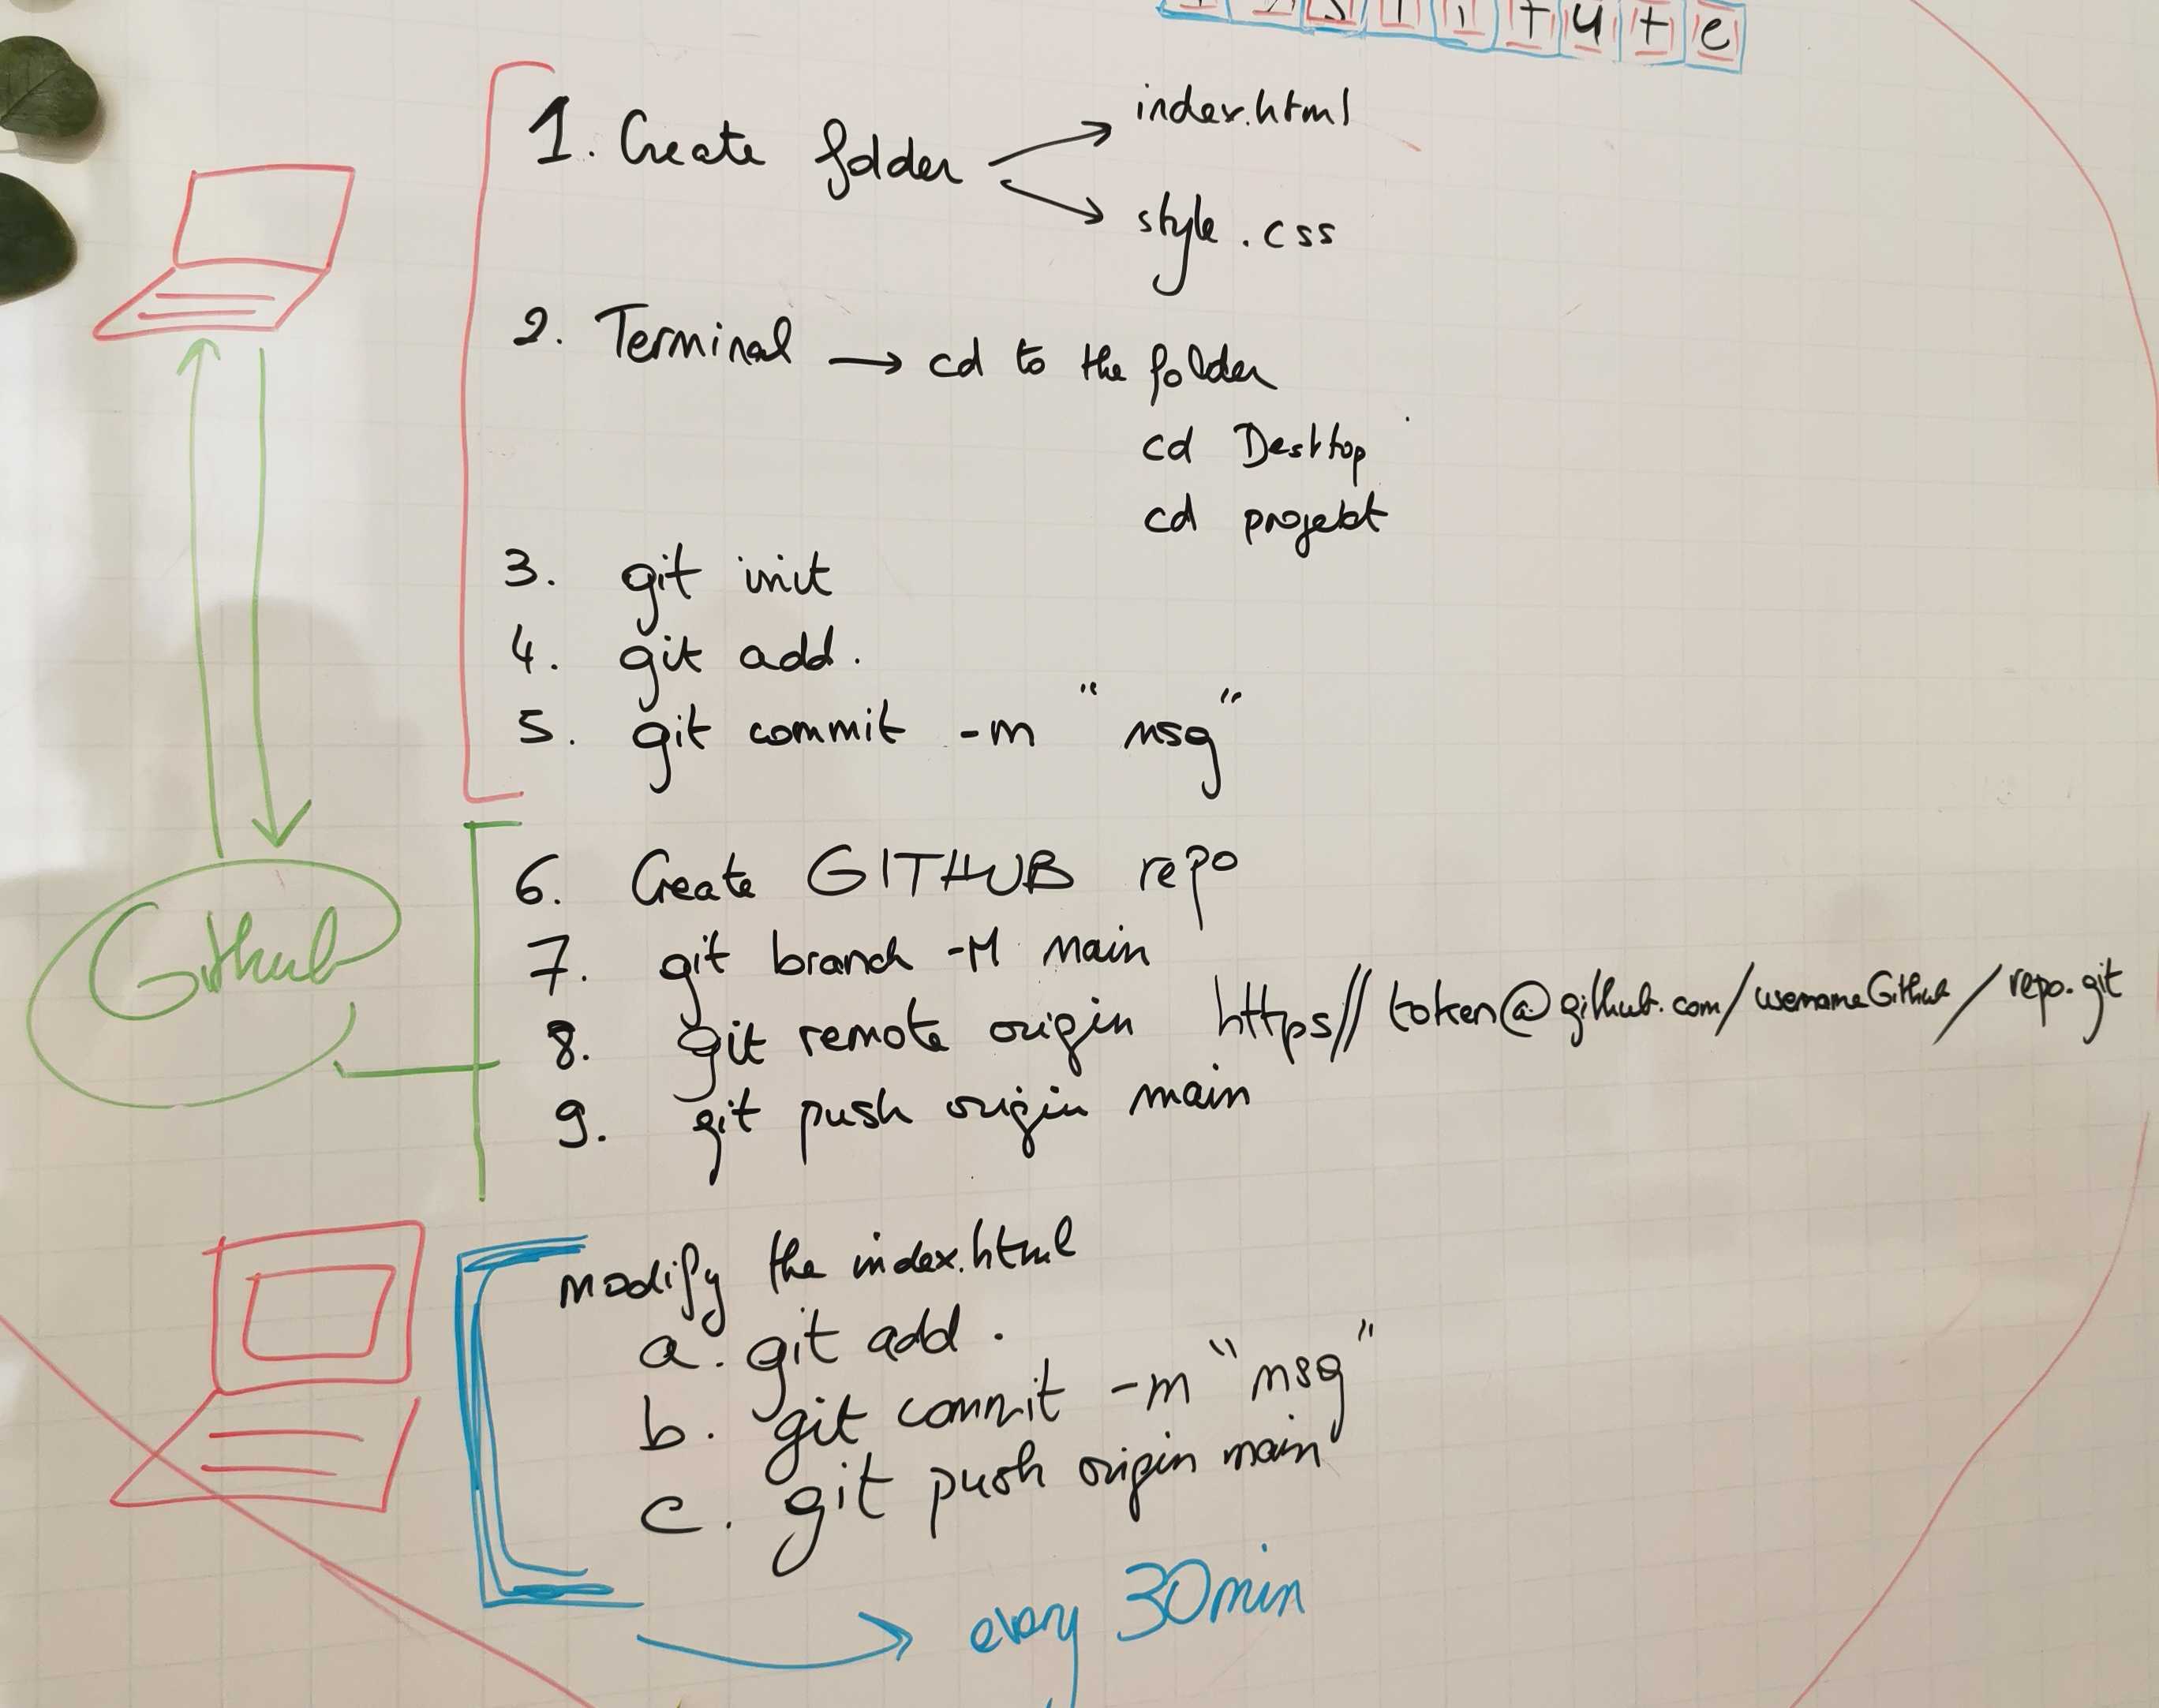 titute
1. Create folder → index.html
→ style.css
2. Terminal → cd to the folder
cd Desktop
cd projekt
3. git init
4. git add .
5. git commit -m "msg"
6. Create GITHUB repo
7. git branch -M main
8. git remote origin https// token@github.com/usernameGithub/repo.git
9. git push origin main
Github
modify the index.html
a. git add .
b. git commit -m "msg"
c. git push origin main
→ every 30min